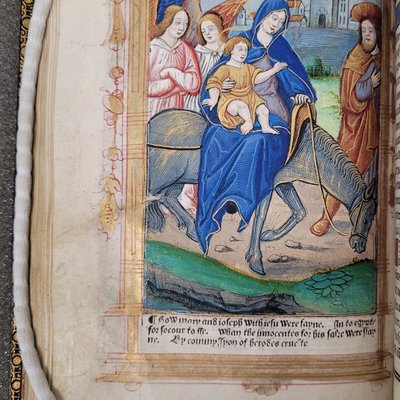 ¶ How mary and ioseph with iesu were fayne. In to egypt/
for socour to fle. Whan the innocentes for his sake were slay
ne. By commyssyon of herodes cruelte